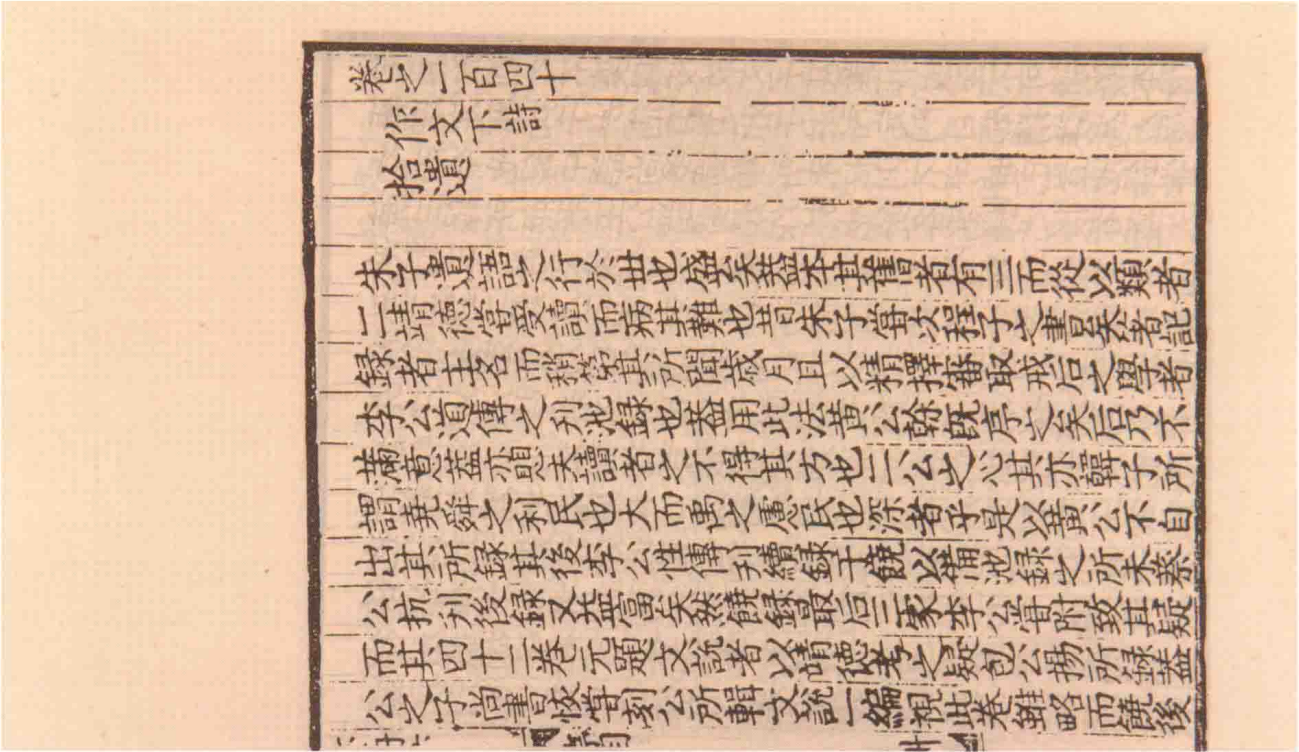 卷之一百四十
作文下詩
拾遺
朱子遺語之行於世也盛矣蓋本其舊者有三而從以類者
二靖德嘗受讀而病其難也昔朱子嘗次程子之書矣著記
録者主名而稍第其所聞歲月且以精擇審取戒后之學者
李公道傳之刋池録也蓋用此法黄公榦既序之矣后乃不
滿意蓋亦懼夫讀者之不得其方也二公之心其亦韓子所
謂堯舜之利民也大而禹之慮民也深者乎是以黄公不自
出其所録其後李公性傳刋續録于饒以備池録之所未蔡
公抗刋後録又益富矣然饒録最后三家李公嘗附致其疑
而其四十二卷元題文說者以靖德考之疑包公揚所録蓋
公之子尚書恢嘗刻公所輯文說一編視此卷雖略而饒後